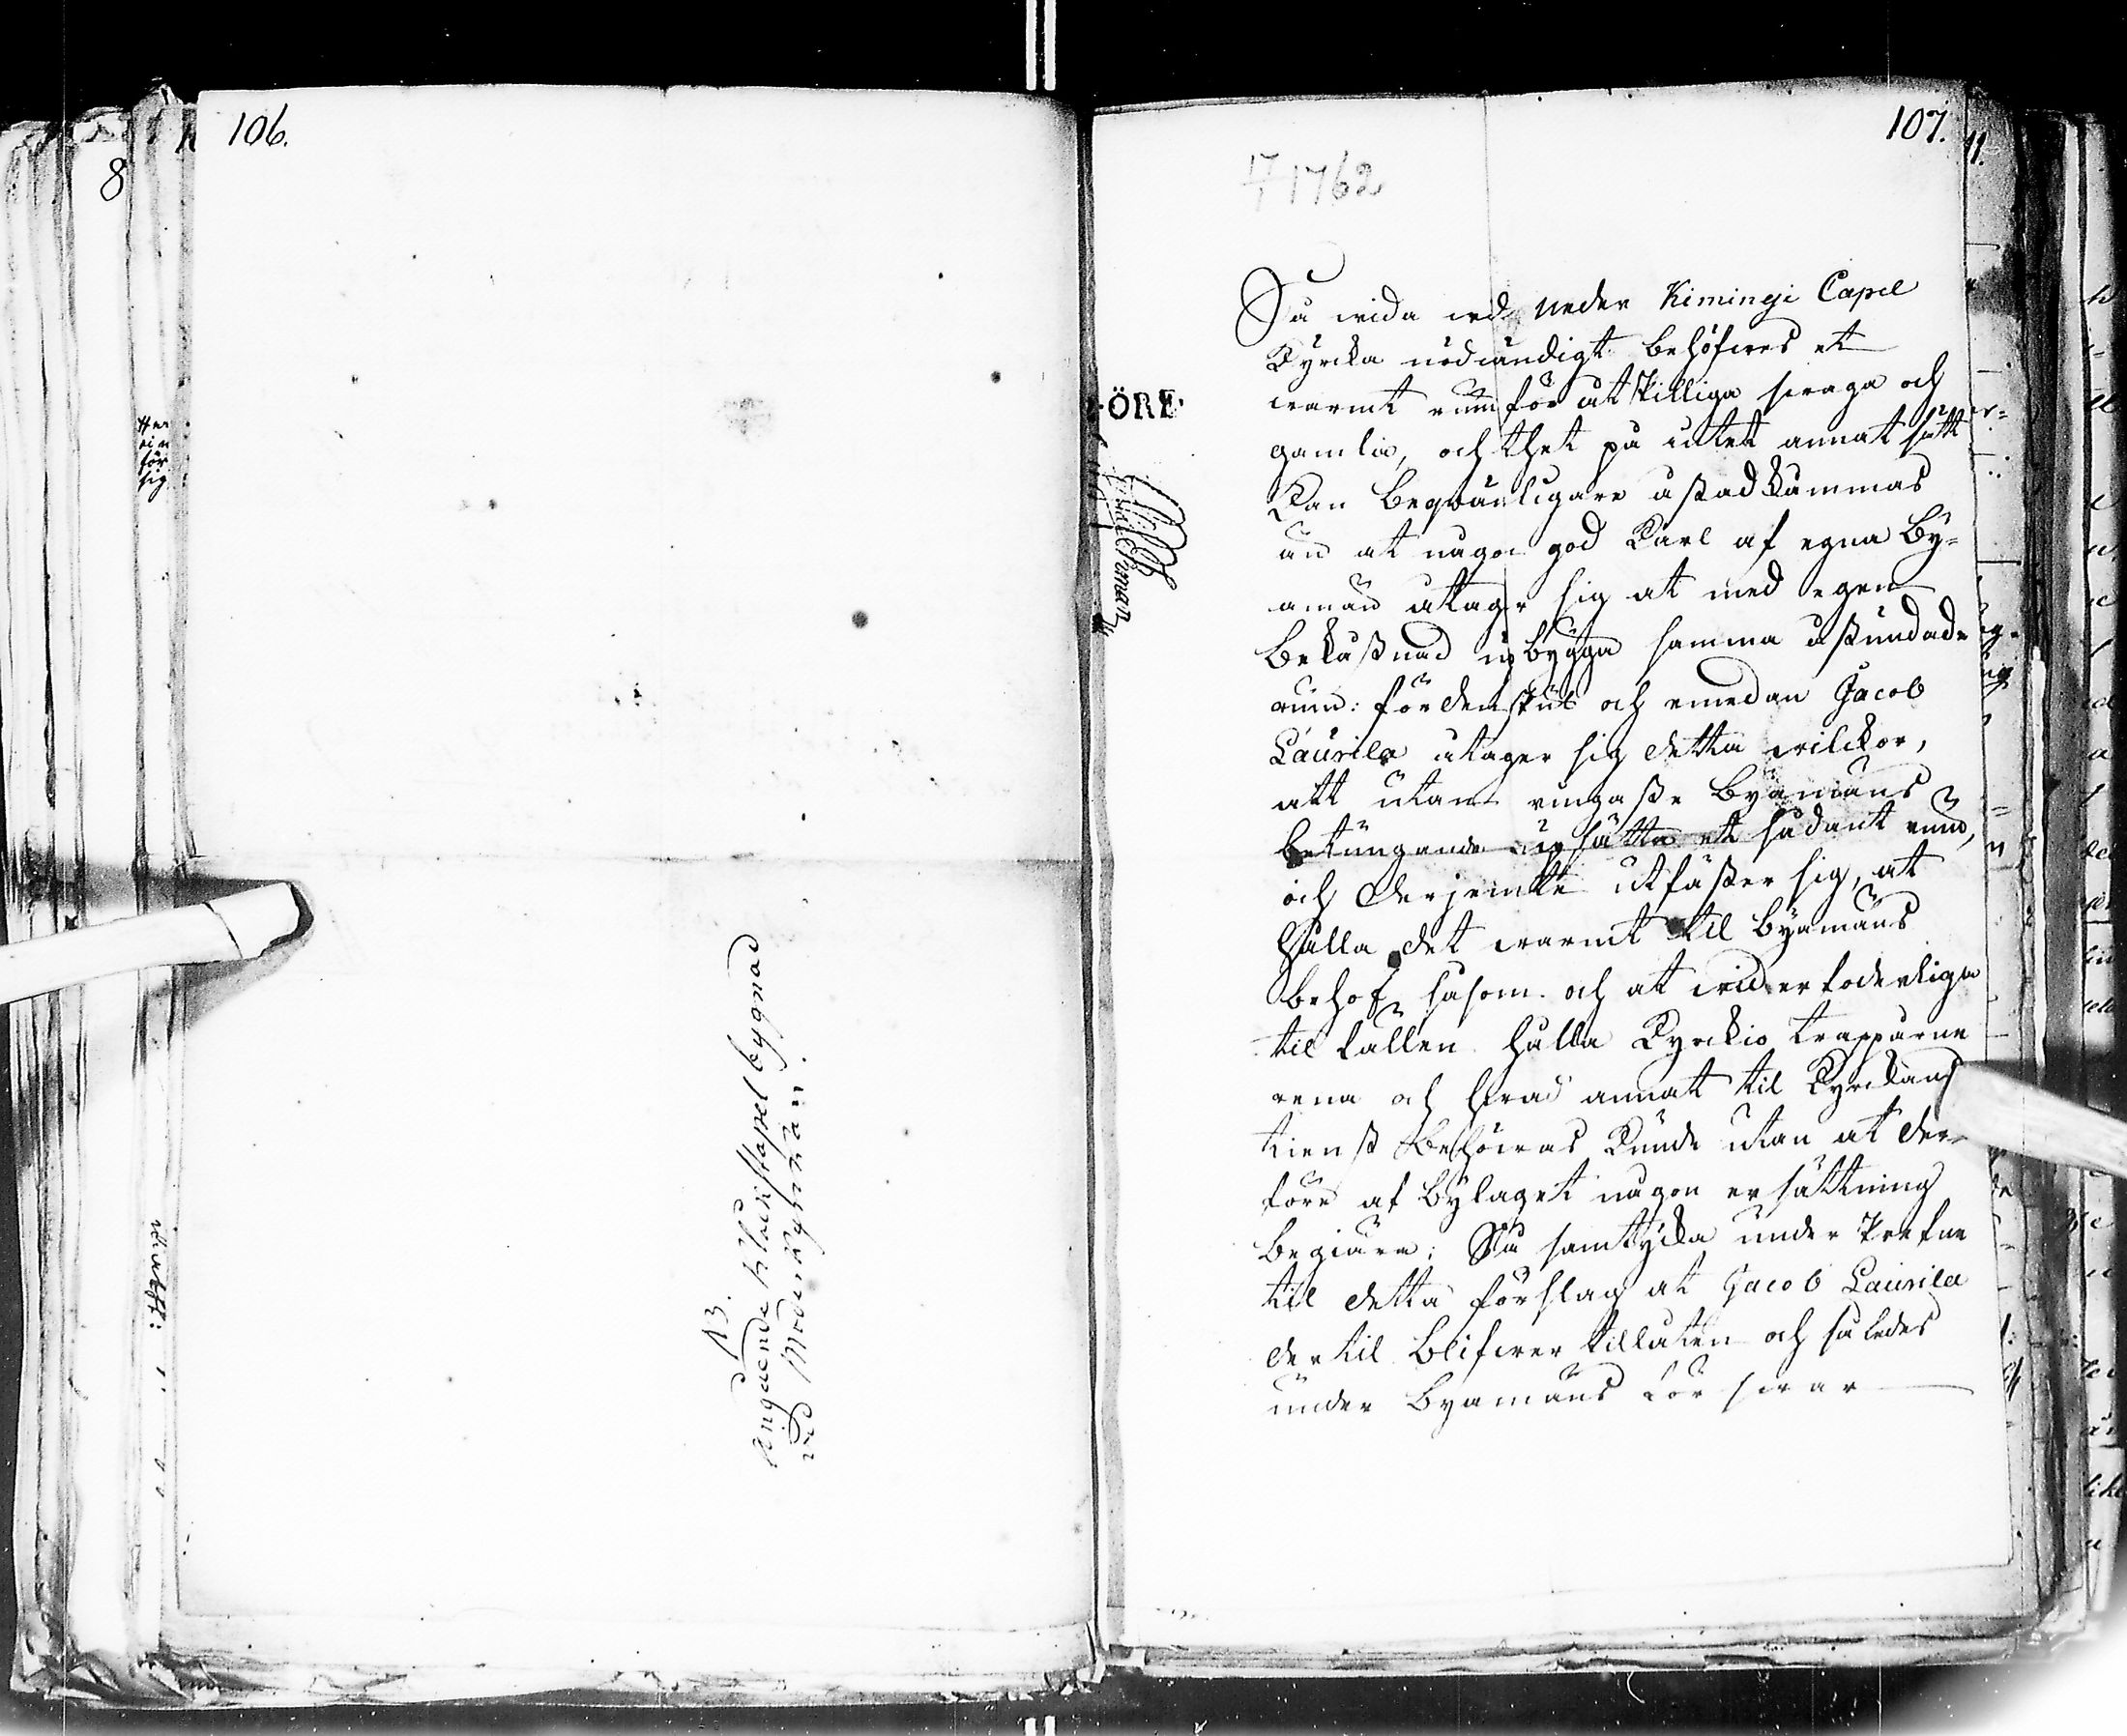 106.
8
N3.
Angående Klockstapel bygnad
wid Neder Kyrckan.
107.
17/1 1762
ÖRE
Så wida wid Neder Kimingi Capel
Kyrcka nödwändigt behöfwes et
warmt rum för åtskilliga swaga och
gamla, och thet på intet annat sätt
kan beqwämligare åstadkommas
än at någon god Karl af egna By=
amän åtager sig at med egen
bekåstnad upbygga samma åstundade
rum: fördenskul och emedan Jacob
Laurila åtager sig detta wilckor,
att utan ringaste Byamäns
betungande upsätta ett sådant rum,
och derjemte utfäster sig, at
hålla det warmt til byamäns
behof, såsom och at wid erfoderliga
tilfällen hålla Kyrckio trappårne
rena och hwad annat til Kyrckans
tienst behöwas kunde utan at der=
före af Bylaget någon ersättning
begiära: Så samtycka under skrefne
til detta förslag at Jacob Laurila
der til blifwer tillåten och således
under Byamäns förswar